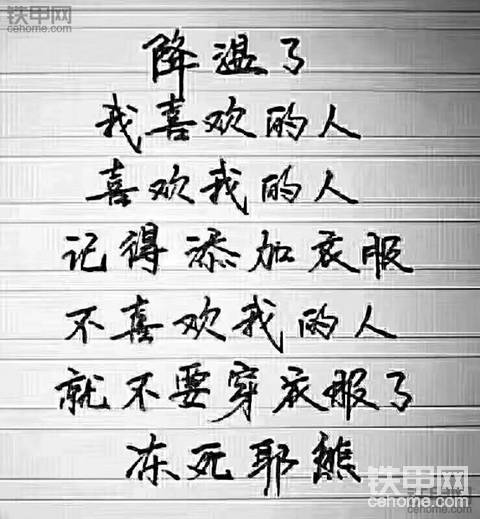 铁甲网
cehome.com
降温了
我喜欢的人
喜欢我的人
记得添加衣服
不喜欢我的人
就不要穿衣服了
冻死耶
铁甲网
cehome.com